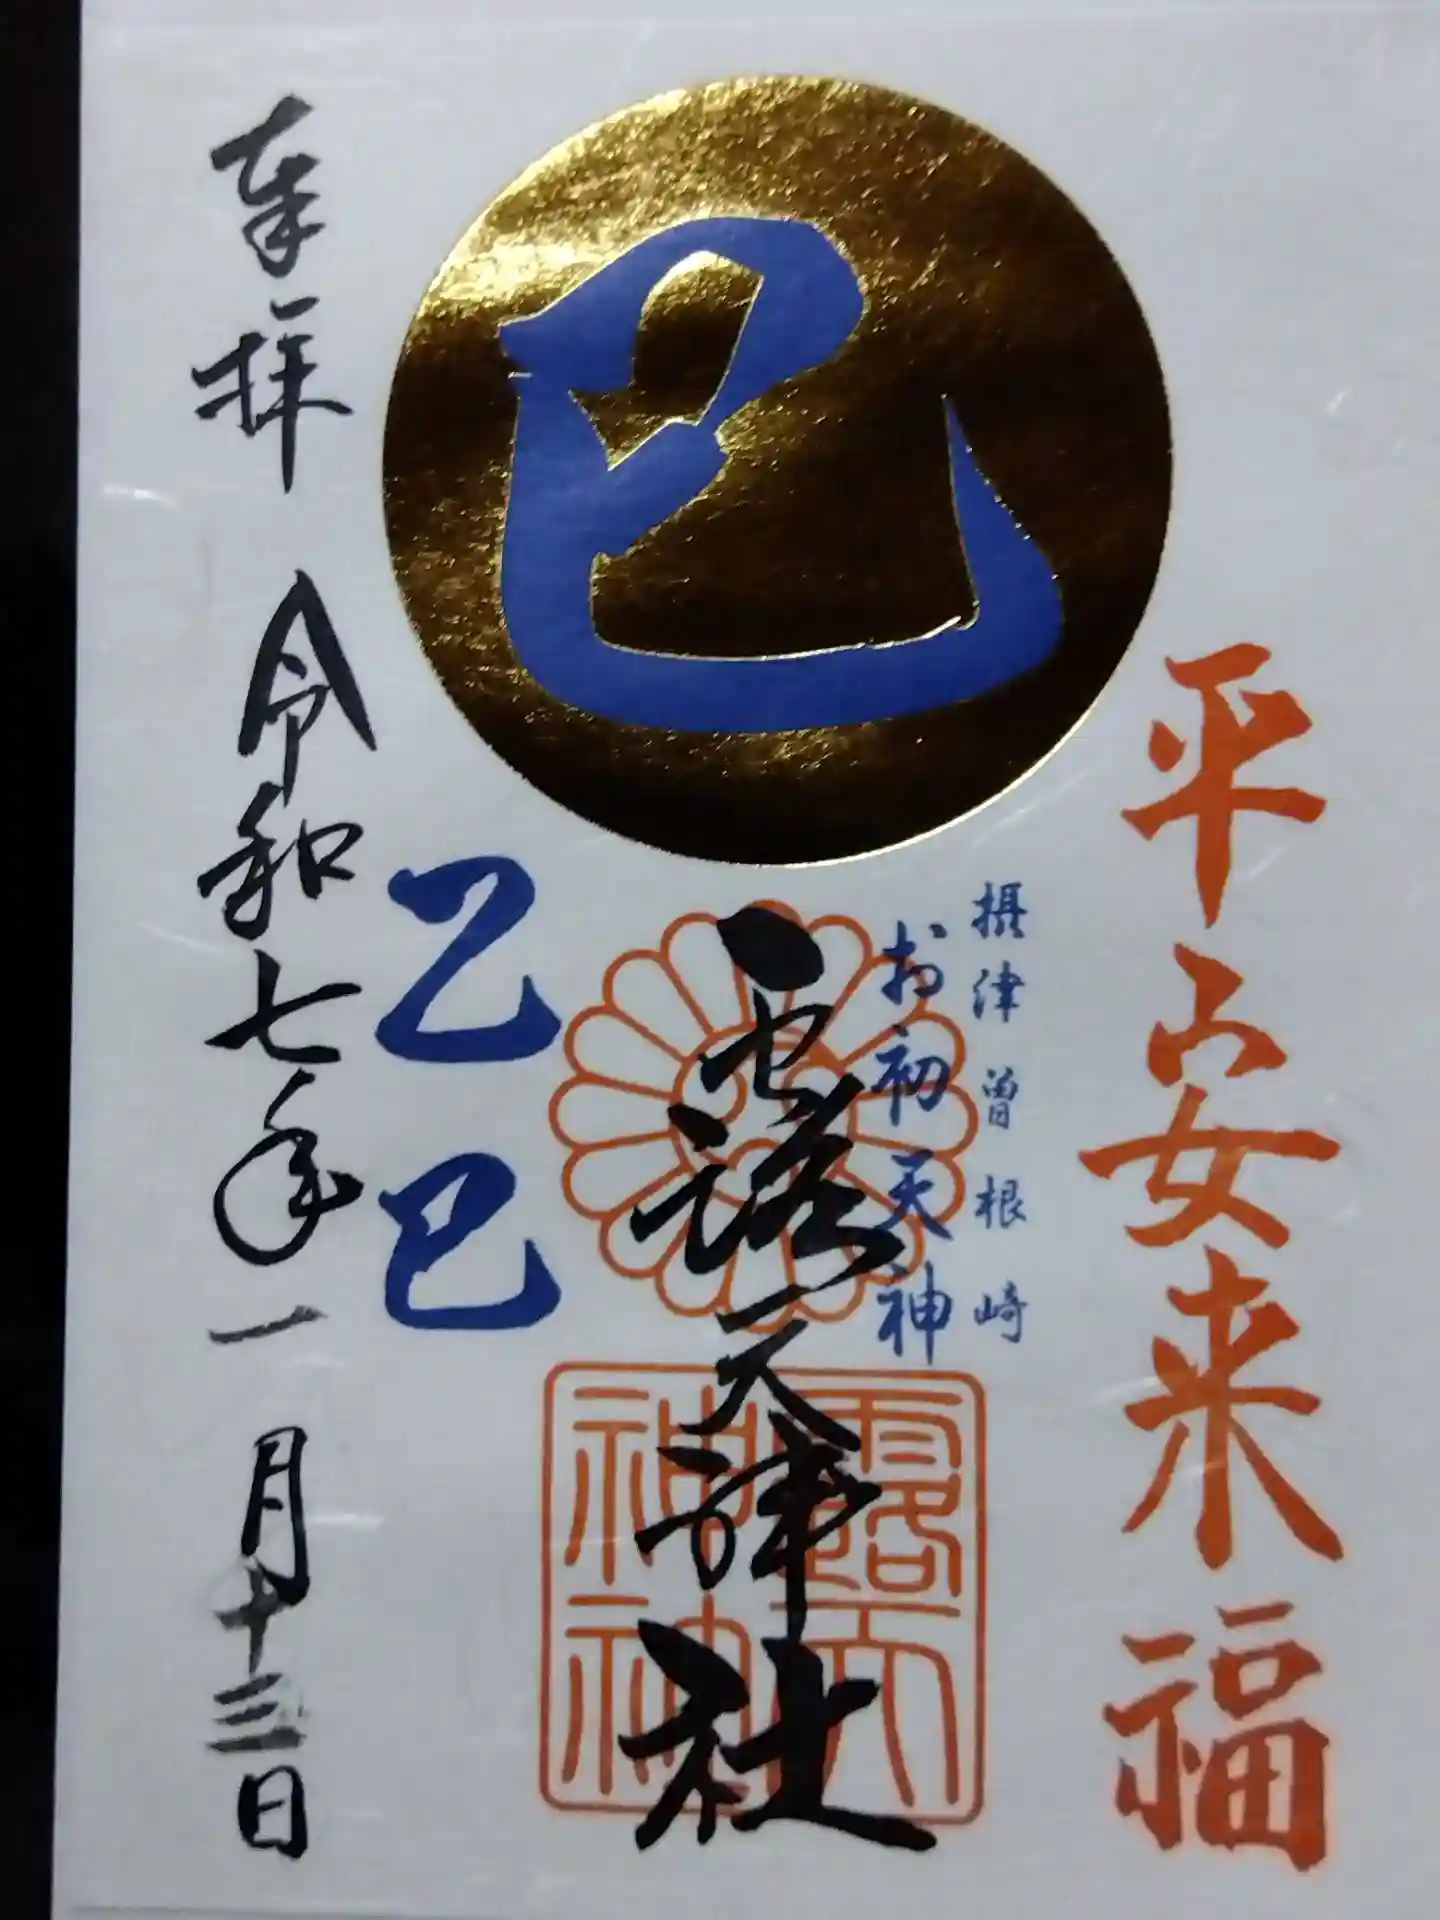 平安来福
巳
摂津曽根崎
お初天神
露天神社
露天
神社
乙巳
奉拝 令和七年一月十三日